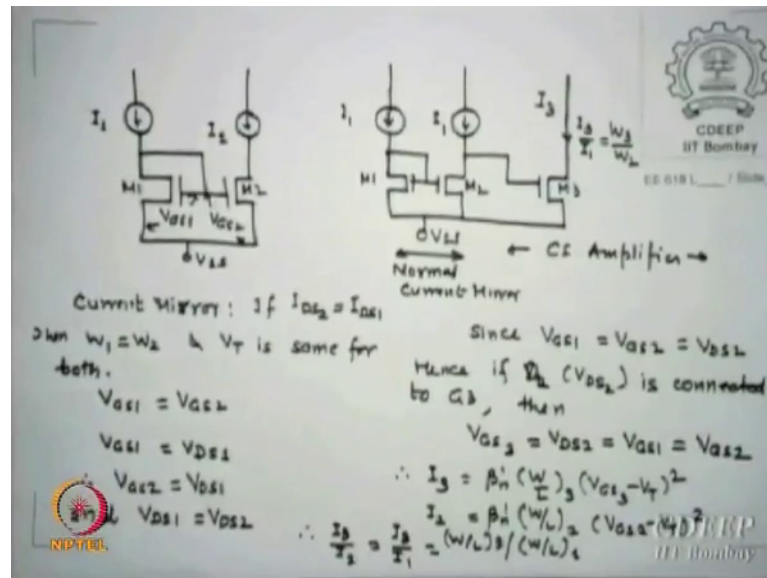 I₁
I₂
M1
M2
VGS1
VGS2
VSS
I₁
I₁
I₃
I₃/I₁ = W₃/W₂
M1
M2
M3
VSS
Normal
Current Mirror
← CS Amplifier →
CDEEP
IIT Bombay
EE 618 L____ / Slide
Current Mirror: If IDS₂ = IDS₁
then W₁ = W₂ & VT is same for
both.
VGS1 = VGS2
VGS1 = VDS1
∴ VGS2 = VDS1
and VDS1 = VDS2
Since VGS1 = VGS2 = VDS2
Hence if (VDS₂) is connected
to G3, then
VGS₃ = VDS2 = VGS1 = VGS2
∴ I₃ = βn' (W/L)₃ (VGS₃ - VT)²
I₂ = βn' (W/L)₂ (VGS2 - VT)²
∴ I₃/I₂ = I₃/I₁ = (W/L)₃/(W/L)₂
NPTEL
CDEEP
IIT Bombay